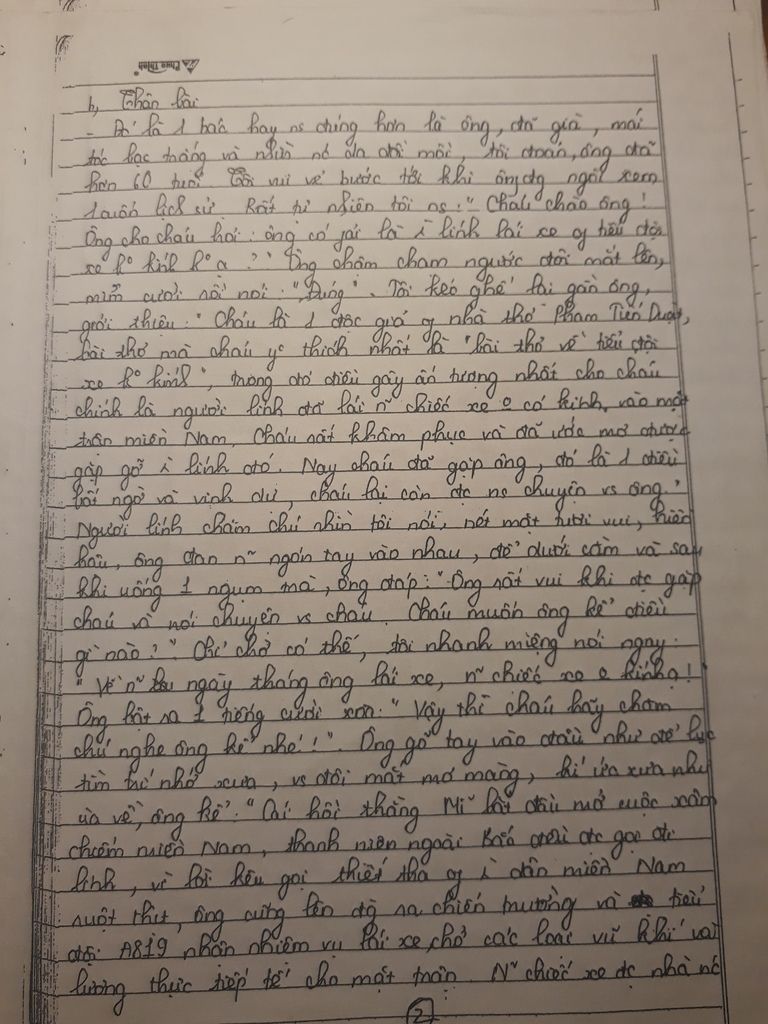 b, Thân bài
- Đó là 1 bác hay ns đúng hơn là ông, đã già, mái
tóc bạc trắng và da đồi mồi, tôi đoán, ông đã
hơn 60 tuổi. Tôi vui vẻ bước tới khi ông đg ngồi xem
1 cuốn lịch sử. Rất tự nhiên tôi ns: "Cháu chào ông!
Ông cho cháu hỏi: ông có fải là lính lái xe of tiểu đội
xe ko kính ko ạ?" Ông chậm chạm ngước đôi mắt lên,
mỉm cười rồi nói: "Đúng". Tôi kéo ghế lại gần ông,
giới thiệu: "Cháu là 1 độc giả of nhà thơ Phạm Tiến Duật,
bài thơ mà cháu yo thích nhất là "bài thơ về tiểu đội
xe ko kính", trong đó điều gây ấn tượng nhất cho cháu
chính là người lính đã lái n~ chiếc xe o có kính, vào mặt
trận miền Nam. Cháu rất khâm phục và đã ước mơ được
gặp gỡ lính đó. Nay cháu đã gặp ông, đó là 1 điều
bất ngờ và vinh dự, cháu lại còn đc ns chuyện vs ông."
Người lính chăm chú nhìn tôi nói, nét mặt tươi vui, hiền
hậu, ông đan n~ ngón tay vào nhau, để dưới cằm và sau
khi uống 1 ngụm trà, ông đáp: "Ông rất vui khi đc gặp
cháu và nói chuyện vs cháu. Cháu muốn ông kể điều
gì nào?" Chỉ chờ có thế, tôi nhanh miệng nói ngay:
"Về n~ ngày tháng ông lái xe, n~ chiếc xe o kính ạ!
Ông bật ra 1 tiếng cười xòa: "Vậy thì cháu hãy chăm
chú nghe ông kể nhé!". Ông gõ tay vào đầu như để lục
tìm trí nhớ xưa, vs đôi mắt mơ màng, kí ức xưa như
ùa về, ông kể: "Cái hồi thằng Mĩ bắt đầu mở cuộc xâm
chiếm miền Nam, thanh niên ngoài Bắc đều đc gọi đi
lính, vì lời kêu gọi thiết tha of dân miền Nam
ruột thịt, ông cũng lên đg ra chiến trường và tiểu
đội A819 nhận nhiệm vụ lái xe, chở các loại vũ khí và
lương thực tiếp tế cho mặt trận. N~ chiếc xe đc nhà nc
2